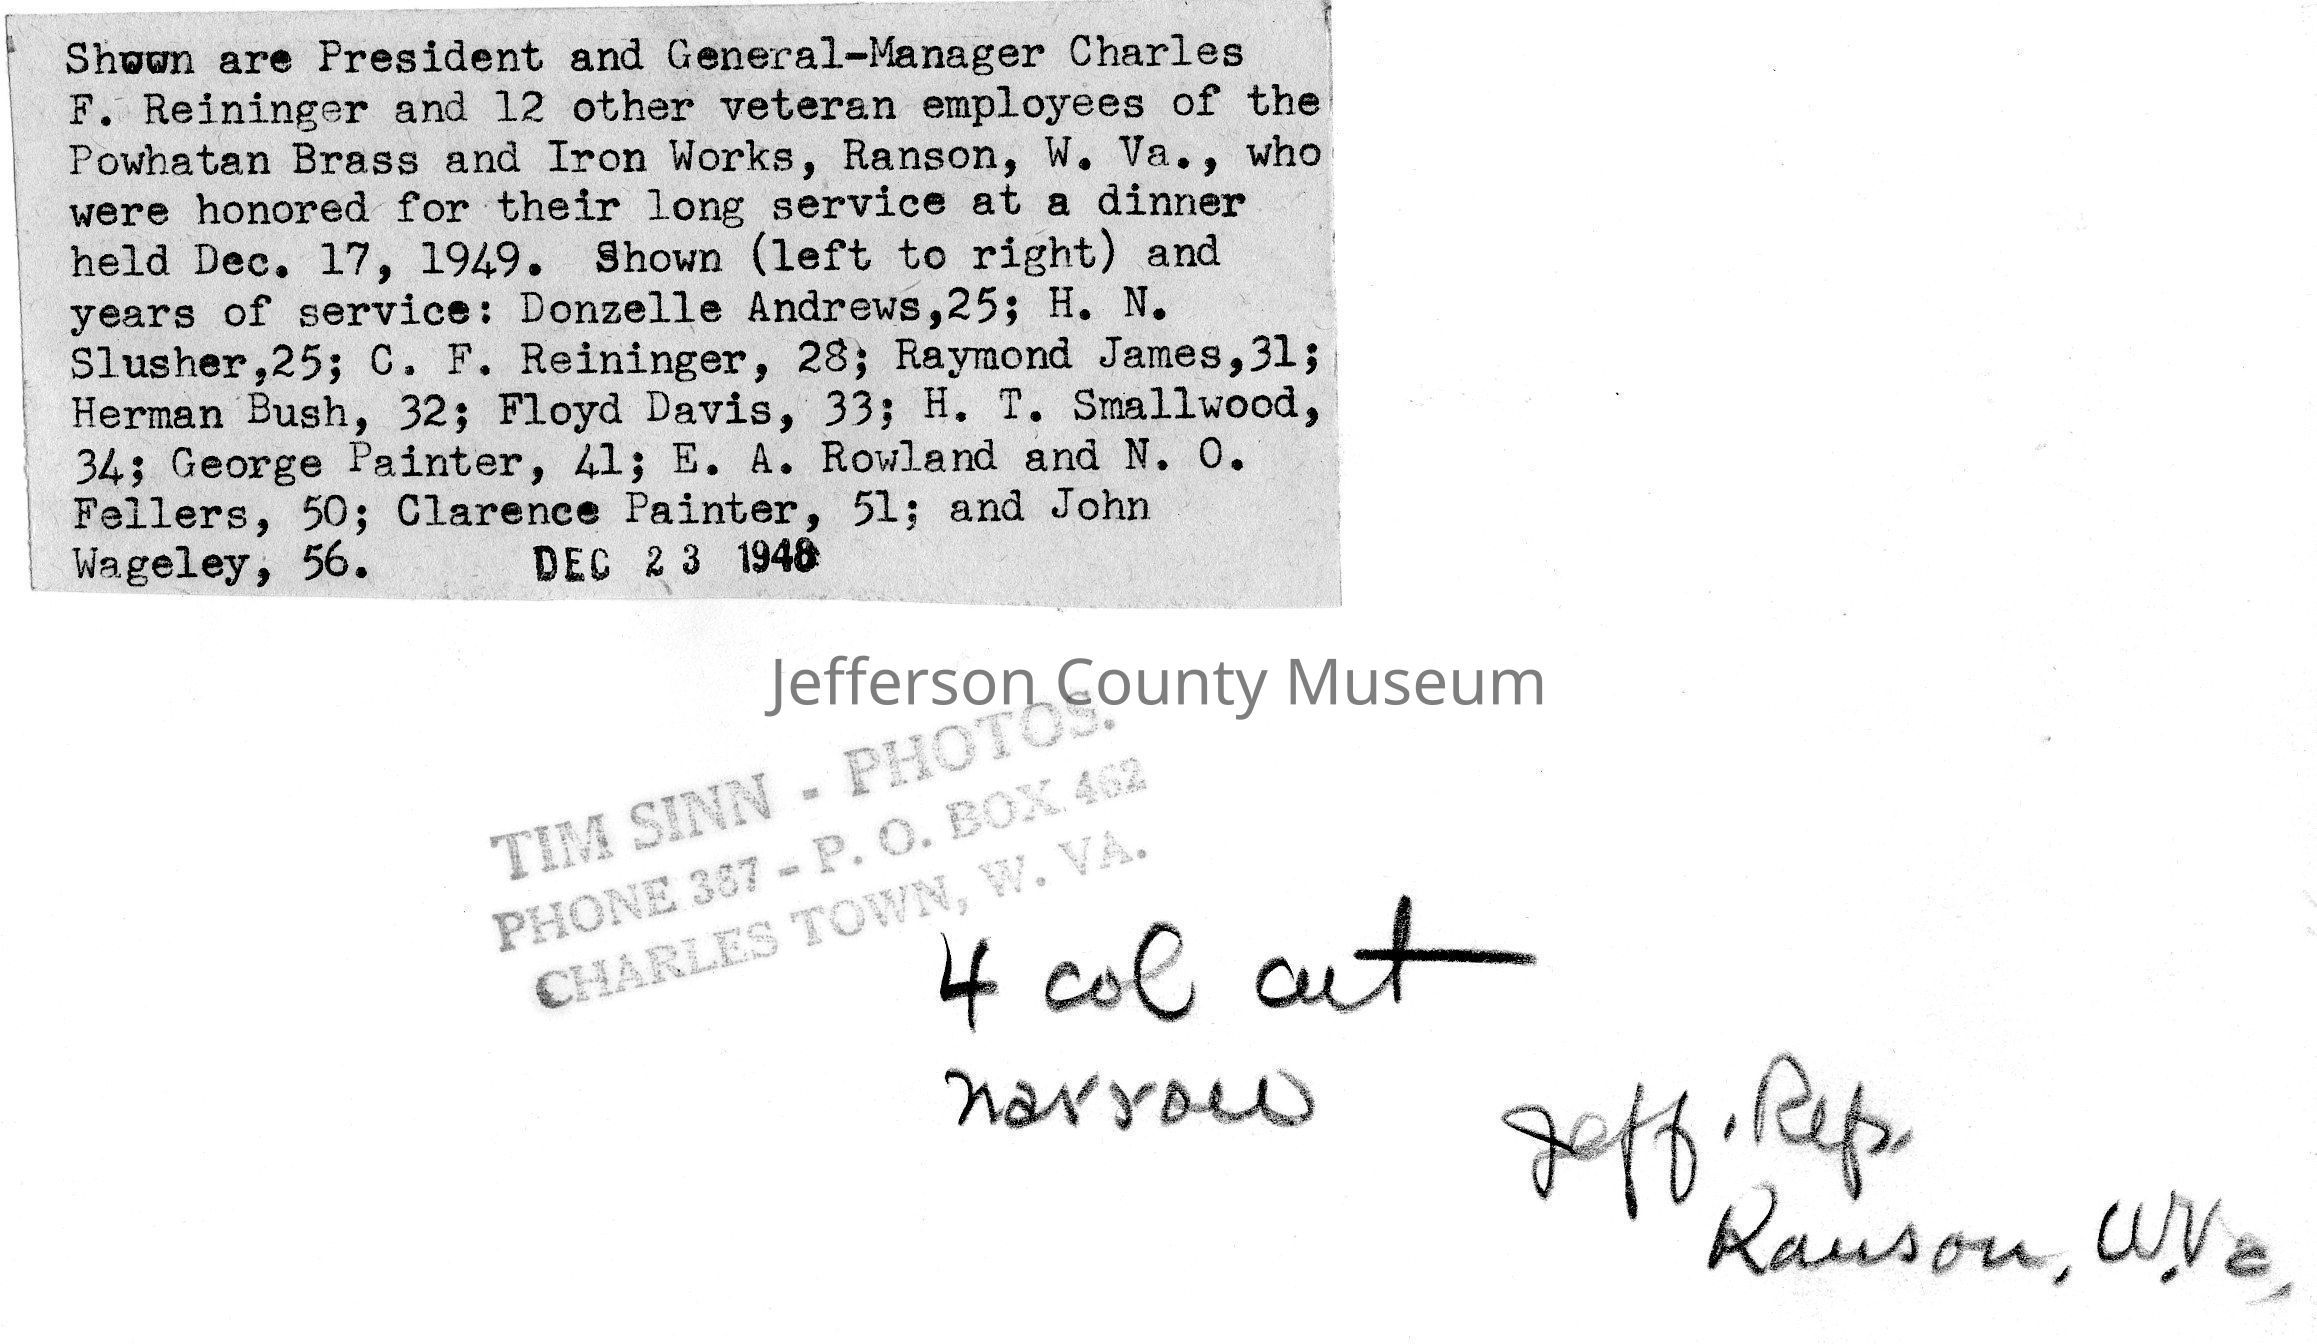 Shown are President and General-Manager Charles
F. Reininger and 12 other veteran employees of the
Powhatan Brass and Iron Works, Ranson, W. Va., who
were honored for their long service at a dinner
held Dec. 17, 1949.  Shown (left to right) and
years of service: Donzelle Andrews,25; H. N.
Slusher,25; C. F. Reininger, 28; Raymond James,31;
Herman Bush, 32; Floyd Davis, 33; H. T. Smallwood,
34; George Painter, 41; E. A. Rowland and N. O.
Fellers, 50; Clarence Painter, 51; and John
Wageley, 56.
DEC 23 1948
Jefferson County Museum
TIM SINN - PHOTOS.
PHONE 367 - P. O. BOX 462
CHARLES TOWN, W. VA.
4 col cut
narrow
Jeff. Rep.
Ranson, W.Va.